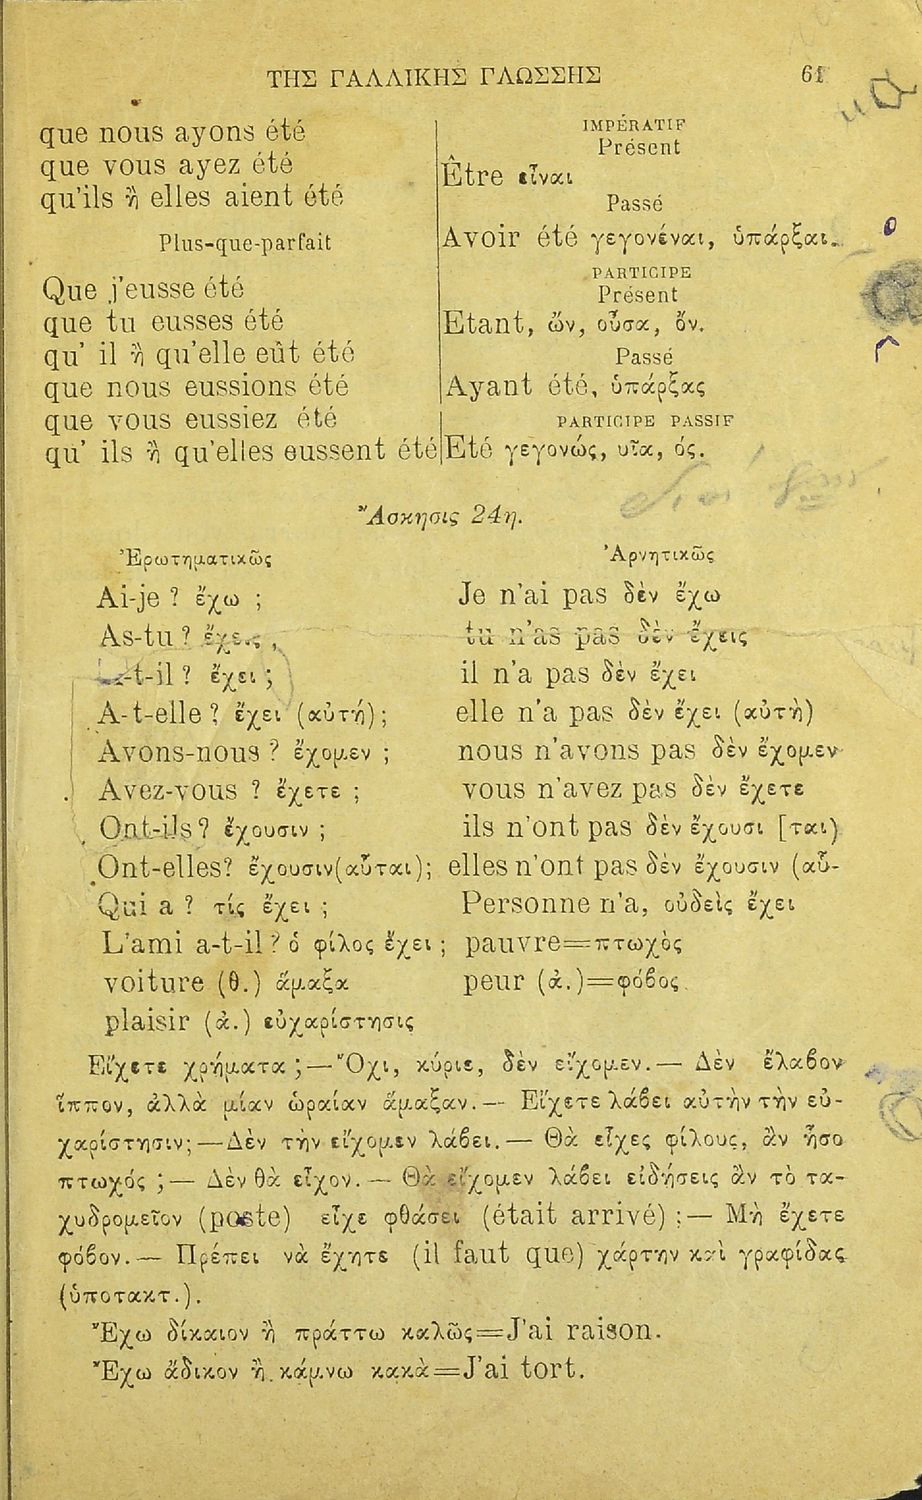 ΤΗΣ ΓΑΛΛΙΚΗΣ ΓΛΩΣΣΗΣ 61
que nous ayons été
que vous ayez été
qu'ils ἢ elles aient été
Plus-que-parfait
Que j'eusse été
que tu eusses été
qu' il ἢ qu'elle eût été
que nous eussions été
que vous eussiez été
qu' ils ἢ qu'elles eussent été
IMPÉRATIF
Présent
Être εἶναι
Passé
Avoir été γεγονέναι, ὑπάρξαι.
PARTICIPE
Présent
Etant, ὤν, οὖσα, ὄν.
Passé
Ayant été, ὑπάρξας
PARTICIPE PASSIF
Eté γεγονώς, υῖα, ός.
Ἄσκησις 24η.
Ἐρωτηματικῶς
Ai-je ? ἔχω ;
As-tu ? ἔχεις ;
-t-il ? ἔχει ;
A-t-elle ? ἔχει (αὐτή) ;
Avons-nous ? ἔχομεν ;
Avez-vous ? ἔχετε ;
Ont-ils ? ἔχουσιν ;
Ont-elles? ἔχουσιν (αὗται) ;
Qui a ? τίς ἔχει ;
L'ami a-t-il ? ὁ φίλος ἔχει ;
voiture (θ.) ἅμαξα
plaisir (ἀ.) εὐχαρίστησις
Ἀρνητικῶς
Je n'ai pas δὲν ἔχω
tu n'as pas δὲν ἔχεις
il n'a pas δὲν ἔχει
elle n'a pas δὲν ἔχει (αὐτὴ)
nous n'avons pas δὲν ἔχομεν
vous n'avez pas δὲν ἔχετε
ils n'ont pas δὲν ἔχουσι [ται)
elles n'ont pas δὲν ἔχουσιν (αὗ-
Personne n'a, οὐδεὶς ἔχει
pauvre=πτωχὸς
peur (ἀ.)=φόβος
Εἴχετε χρήματα ;—Ὄχι, κύριε, δὲν εἴχομεν.— Δὲν ἔλαβον
ἵππον, ἀλλὰ μίαν ὡραίαν ἅμαξαν.— Εἴχετε λάβει αὐτὴν τὴν εὐ-
χαρίστησιν;—Δὲν τὴν εἴχομεν λάβει.— Θὰ εἶχες φίλους, ἂν ἦσο
πτωχός ;— Δὲν θὰ εἶχον.— Θὰ εἴχομεν λάβει εἰδήσεις ἂν τὸ τα-
χυδρομεῖον (poste) εἶχε φθάσει (était arrivé) ;— Μὴ ἔχετε
φόβον.— Πρέπει νὰ ἔχητε (il faut que) χάρτην καὶ γραφίδας
(ὑποτακτ.).
Ἔχω δίκαιον ἢ πράττω καλῶς=J'ai raison.
Ἔχω ἄδικον ἢ κάμνω κακὰ=J'ai tort.